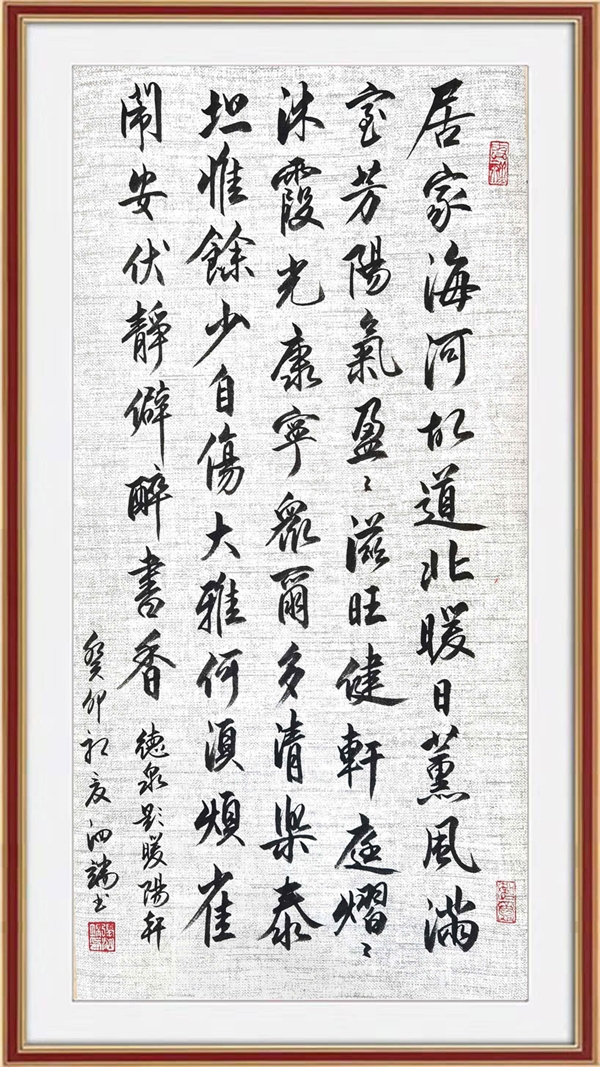 居家海河故道北暖日薰風滿
室芳陽氣盈〻滋旺健軒庭熠〻
沐霞光康寧眾爾多清樂泰
坦惟餘少自傷大雅何須煩雀
鬧安伏靜僻醉書香
德泉影暖陽軒
癸卯初夏泗端书